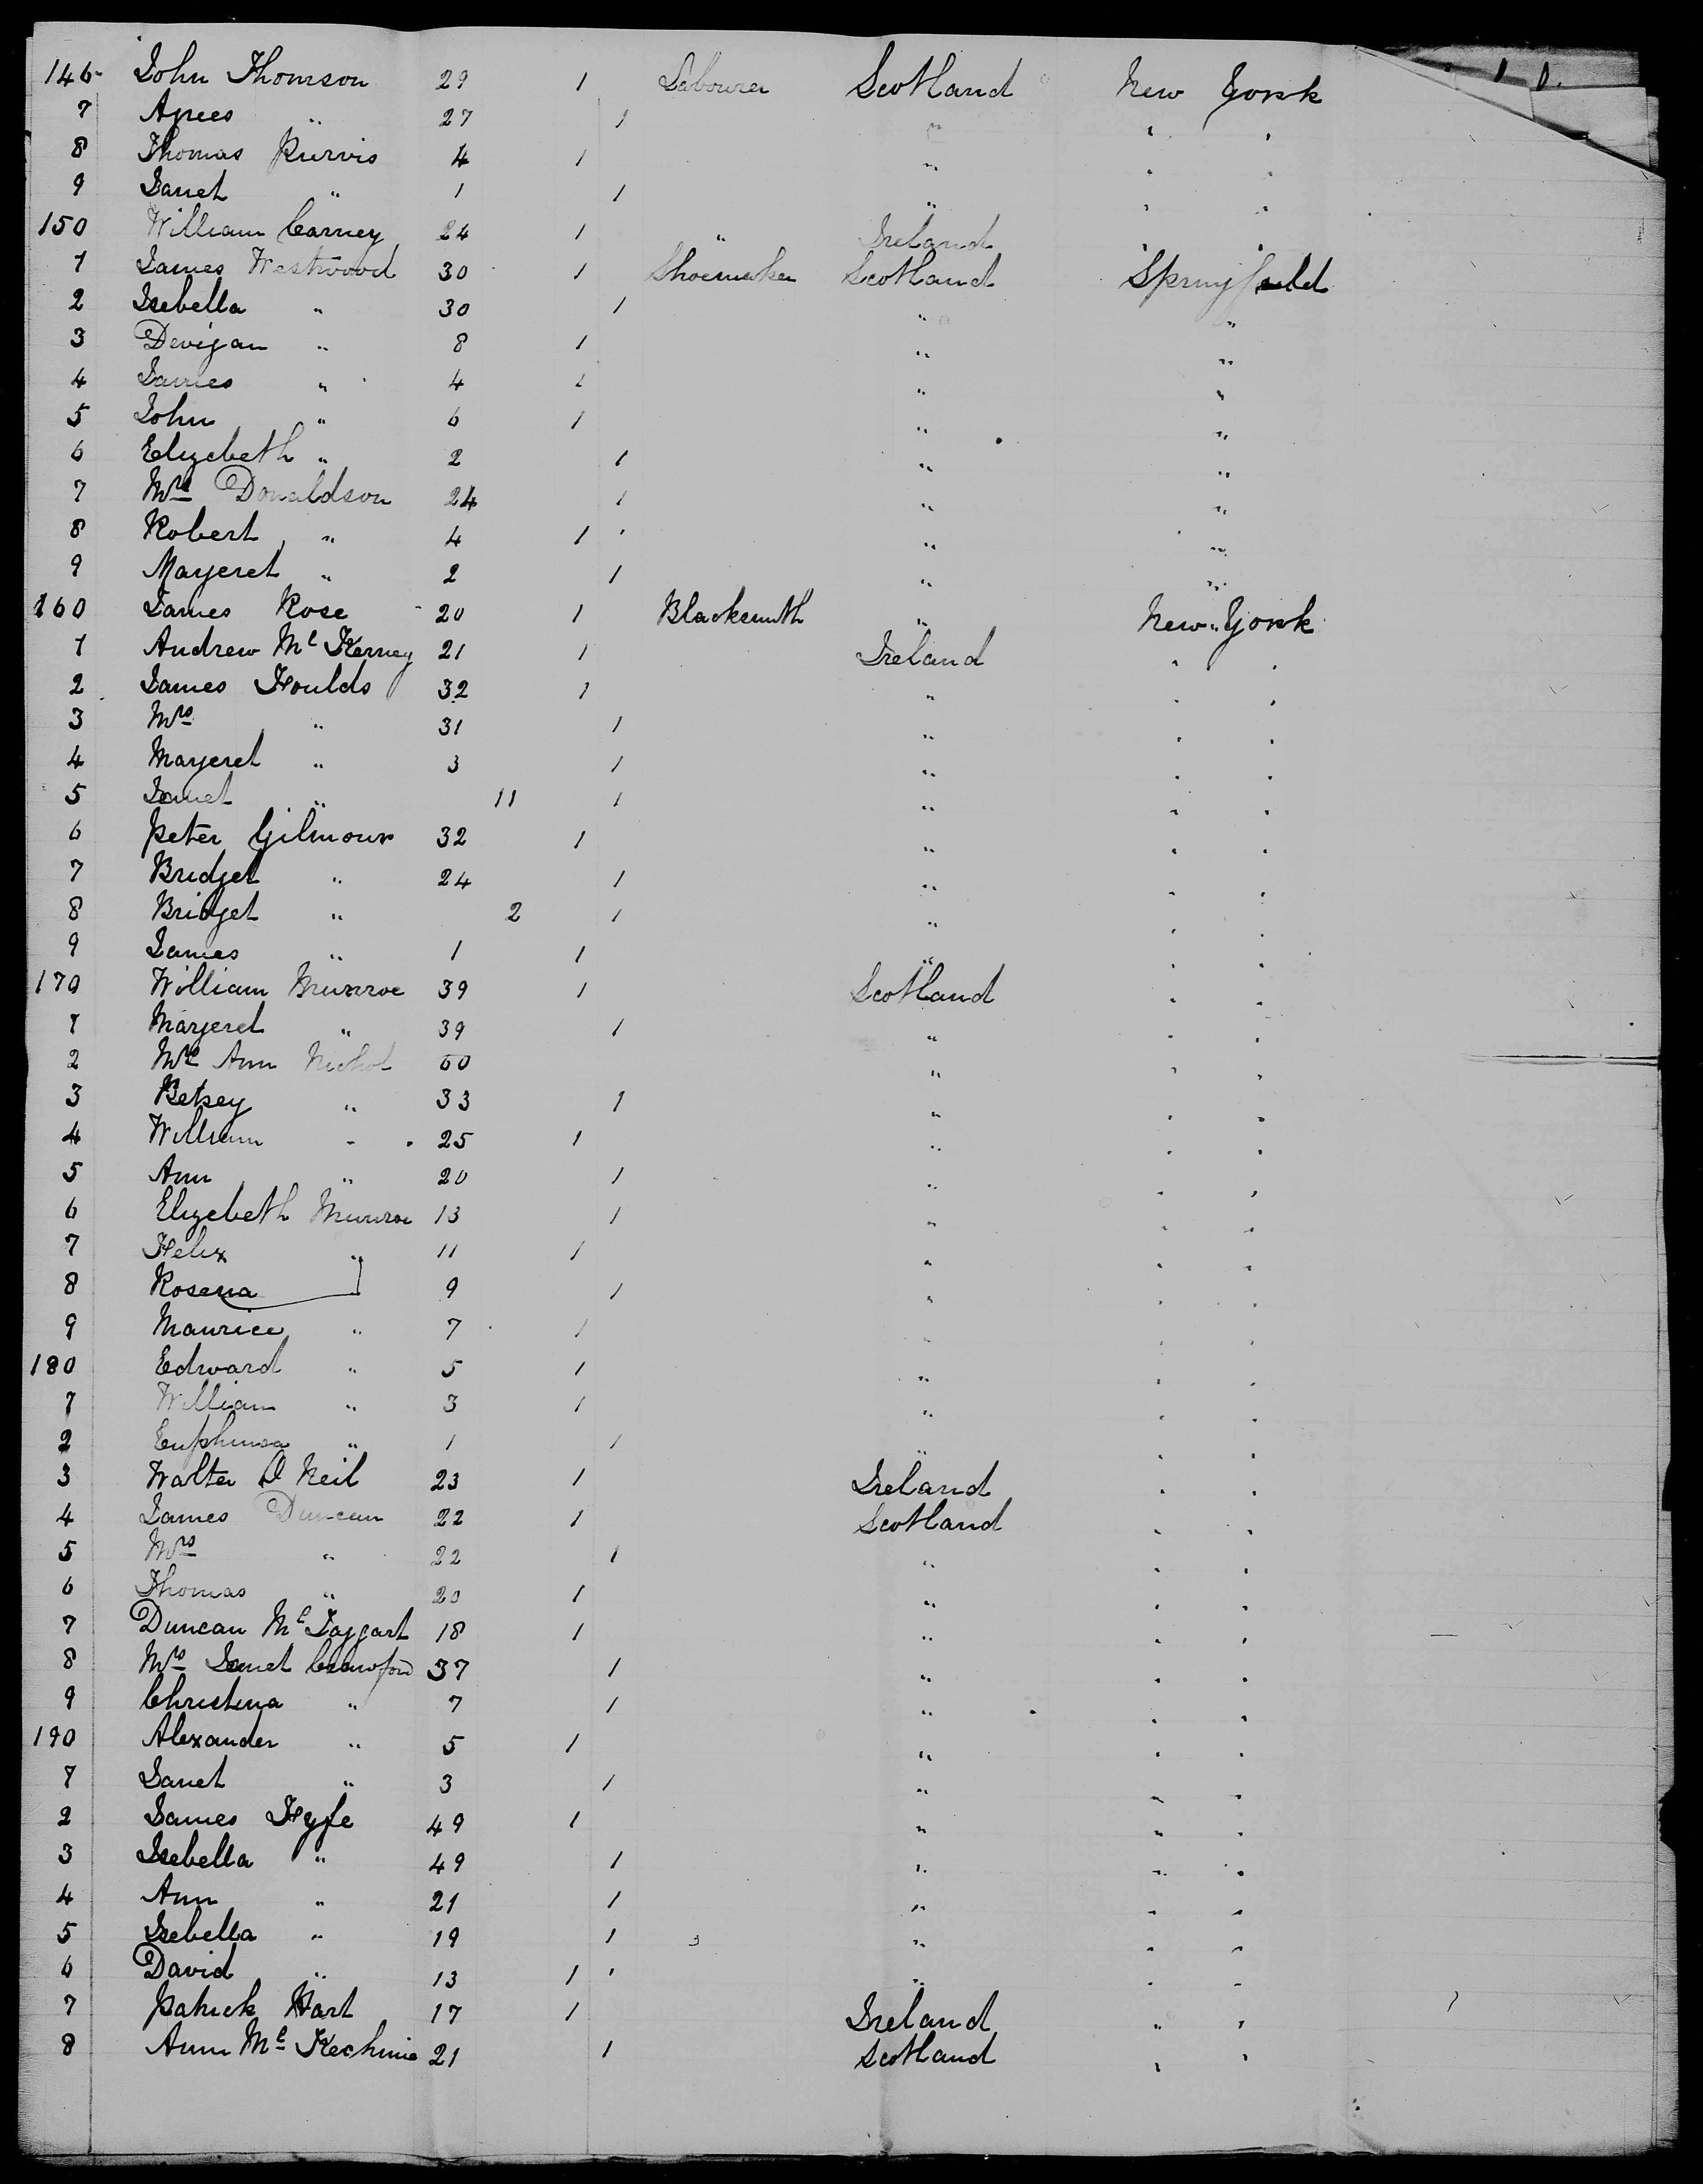 146 John Thomson 29 1 Labourer Scotland New York
7 Agnes " 27 1 " " "
8 Thomas Purvis 4 1 " " "
9 Janet " 1 1 " " "
150 William Carney 24 1 " Ireland " "
1 James Westwood 30 1 Shoemaker Scotland Springfield
2 Isebella " 30 1 " "
3 8 1 " "
4 James " 4 1 " "
5 John " 6 1 " "
6 Elizebeth " 2 1 " "
7 Mrs Donaldson 24 1 " "
8 Robert " 4 1 " "
9 Margeret " 2 1 " "
160 James Rose 20 1 Blacksmith " New York
1 Andrew Mc Kerney 21 1 Ireland " "
2 James Foulds 32 1 " " "
3 Mrs " 31 1 " " "
4 Margeret " 3 1 " " "
5 Janet " 11 1 " " "
6 Peter Gilmour 32 1 " " "
7 Bridget " 24 1 " " "
8 Bridget " 2 1 " " "
9 James " 1 1 " " "
170 William Munroe 39 1 Scotland " "
1 Margeret " 39 1 " " "
2 Mrs Ann Nichol 60 " " "
3 Betsey " 33 1 " " "
4 William " 25 1 " " "
5 Ann " 20 1 " " "
6 Elizebeth Munroe 13 1 " " "
7 Felix " 11 1 " " "
8 Rosena 9 1 " " "
9 Maurice " 7 1 " " "
180 Edward " 5 1 " " "
1 William " 3 1 " " "
2 " 1 1 " " "
3 Walter O Neil 23 1 Ireland " "
4 James Duncan 22 1 Scotland " "
5 Mrs " 22 1 " " "
6 Thomas " 20 1 " " "
7 Duncan Mc Taggart 18 1 " " "
8 Mrs Janet Crawford 37 1 " " "
9 Christina " 7 1 " " "
190 Alexander " 5 1 " " "
1 Janet " 3 1 " " "
2 James Fyfe 49 1 " " "
3 Isebella " 49 1 " " "
4 Ann " 21 1 " " "
5 Isebella " 19 1 " " "
6 David " 13 1 " " "
7 Patrick Hart 17 1 Ireland " "
8 Ann Mc Kechnie 21 1 Scotland " "